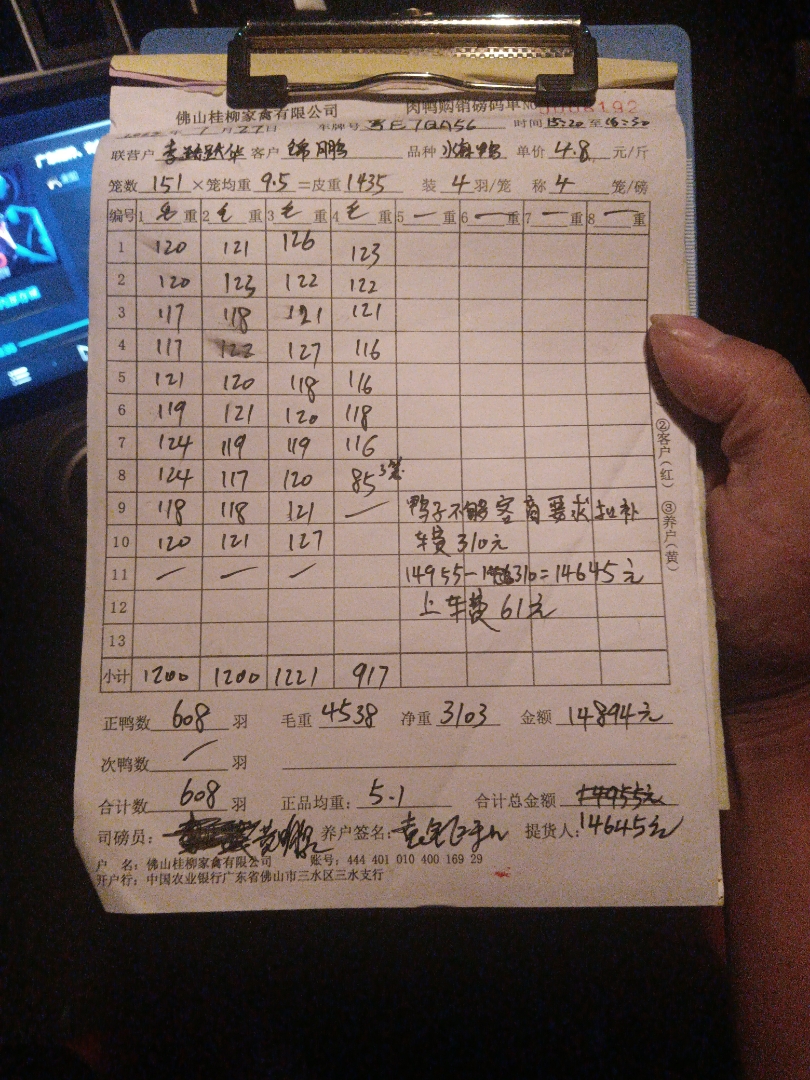 佛山桂柳家禽有限公司 肉鸭购销磅码单 No
7月27日 车牌号 时间 15:20 至
联营户 客户 锦鹏 品种 单价 4.8 元/斤
笼数 151 ×笼均重 9.5 =皮重 1435 装 4 羽/笼 称 4 笼/磅
编号 1 毛 重 2 毛 重 3 毛 重 4 毛 重 5 一 重 6 一 重 7 一 重 8 一 重
1 120 121 126 123
2 120 123 122 122
3 117 118 121 121
4 117 122 127 116
5 121 120 118 116
6 119 121 120 118
7 124 119 119 116
8 124 117 120 85 3笼
9 118 118 121 — 鸭子不够客商要求扣补
10 120 121 127 车费310元
11 — — — 14955-310=14645元
12 上车费61元
13
小计 1200 1200 1221 917
正鸭数 608 羽 毛重 4538 净重 3103 金额 14894元
次鸭数 / 羽
合计数 608 羽 正品均重: 5.1 合计总金额 14955元
司磅员: 养户签名: 提货人: 14645元
户 名: 佛山桂柳家禽有限公司 账号: 444 401 010 400 169 29
开户行: 中国农业银行广东省佛山市三水区三水支行
②客户(红) ③养户(黄)